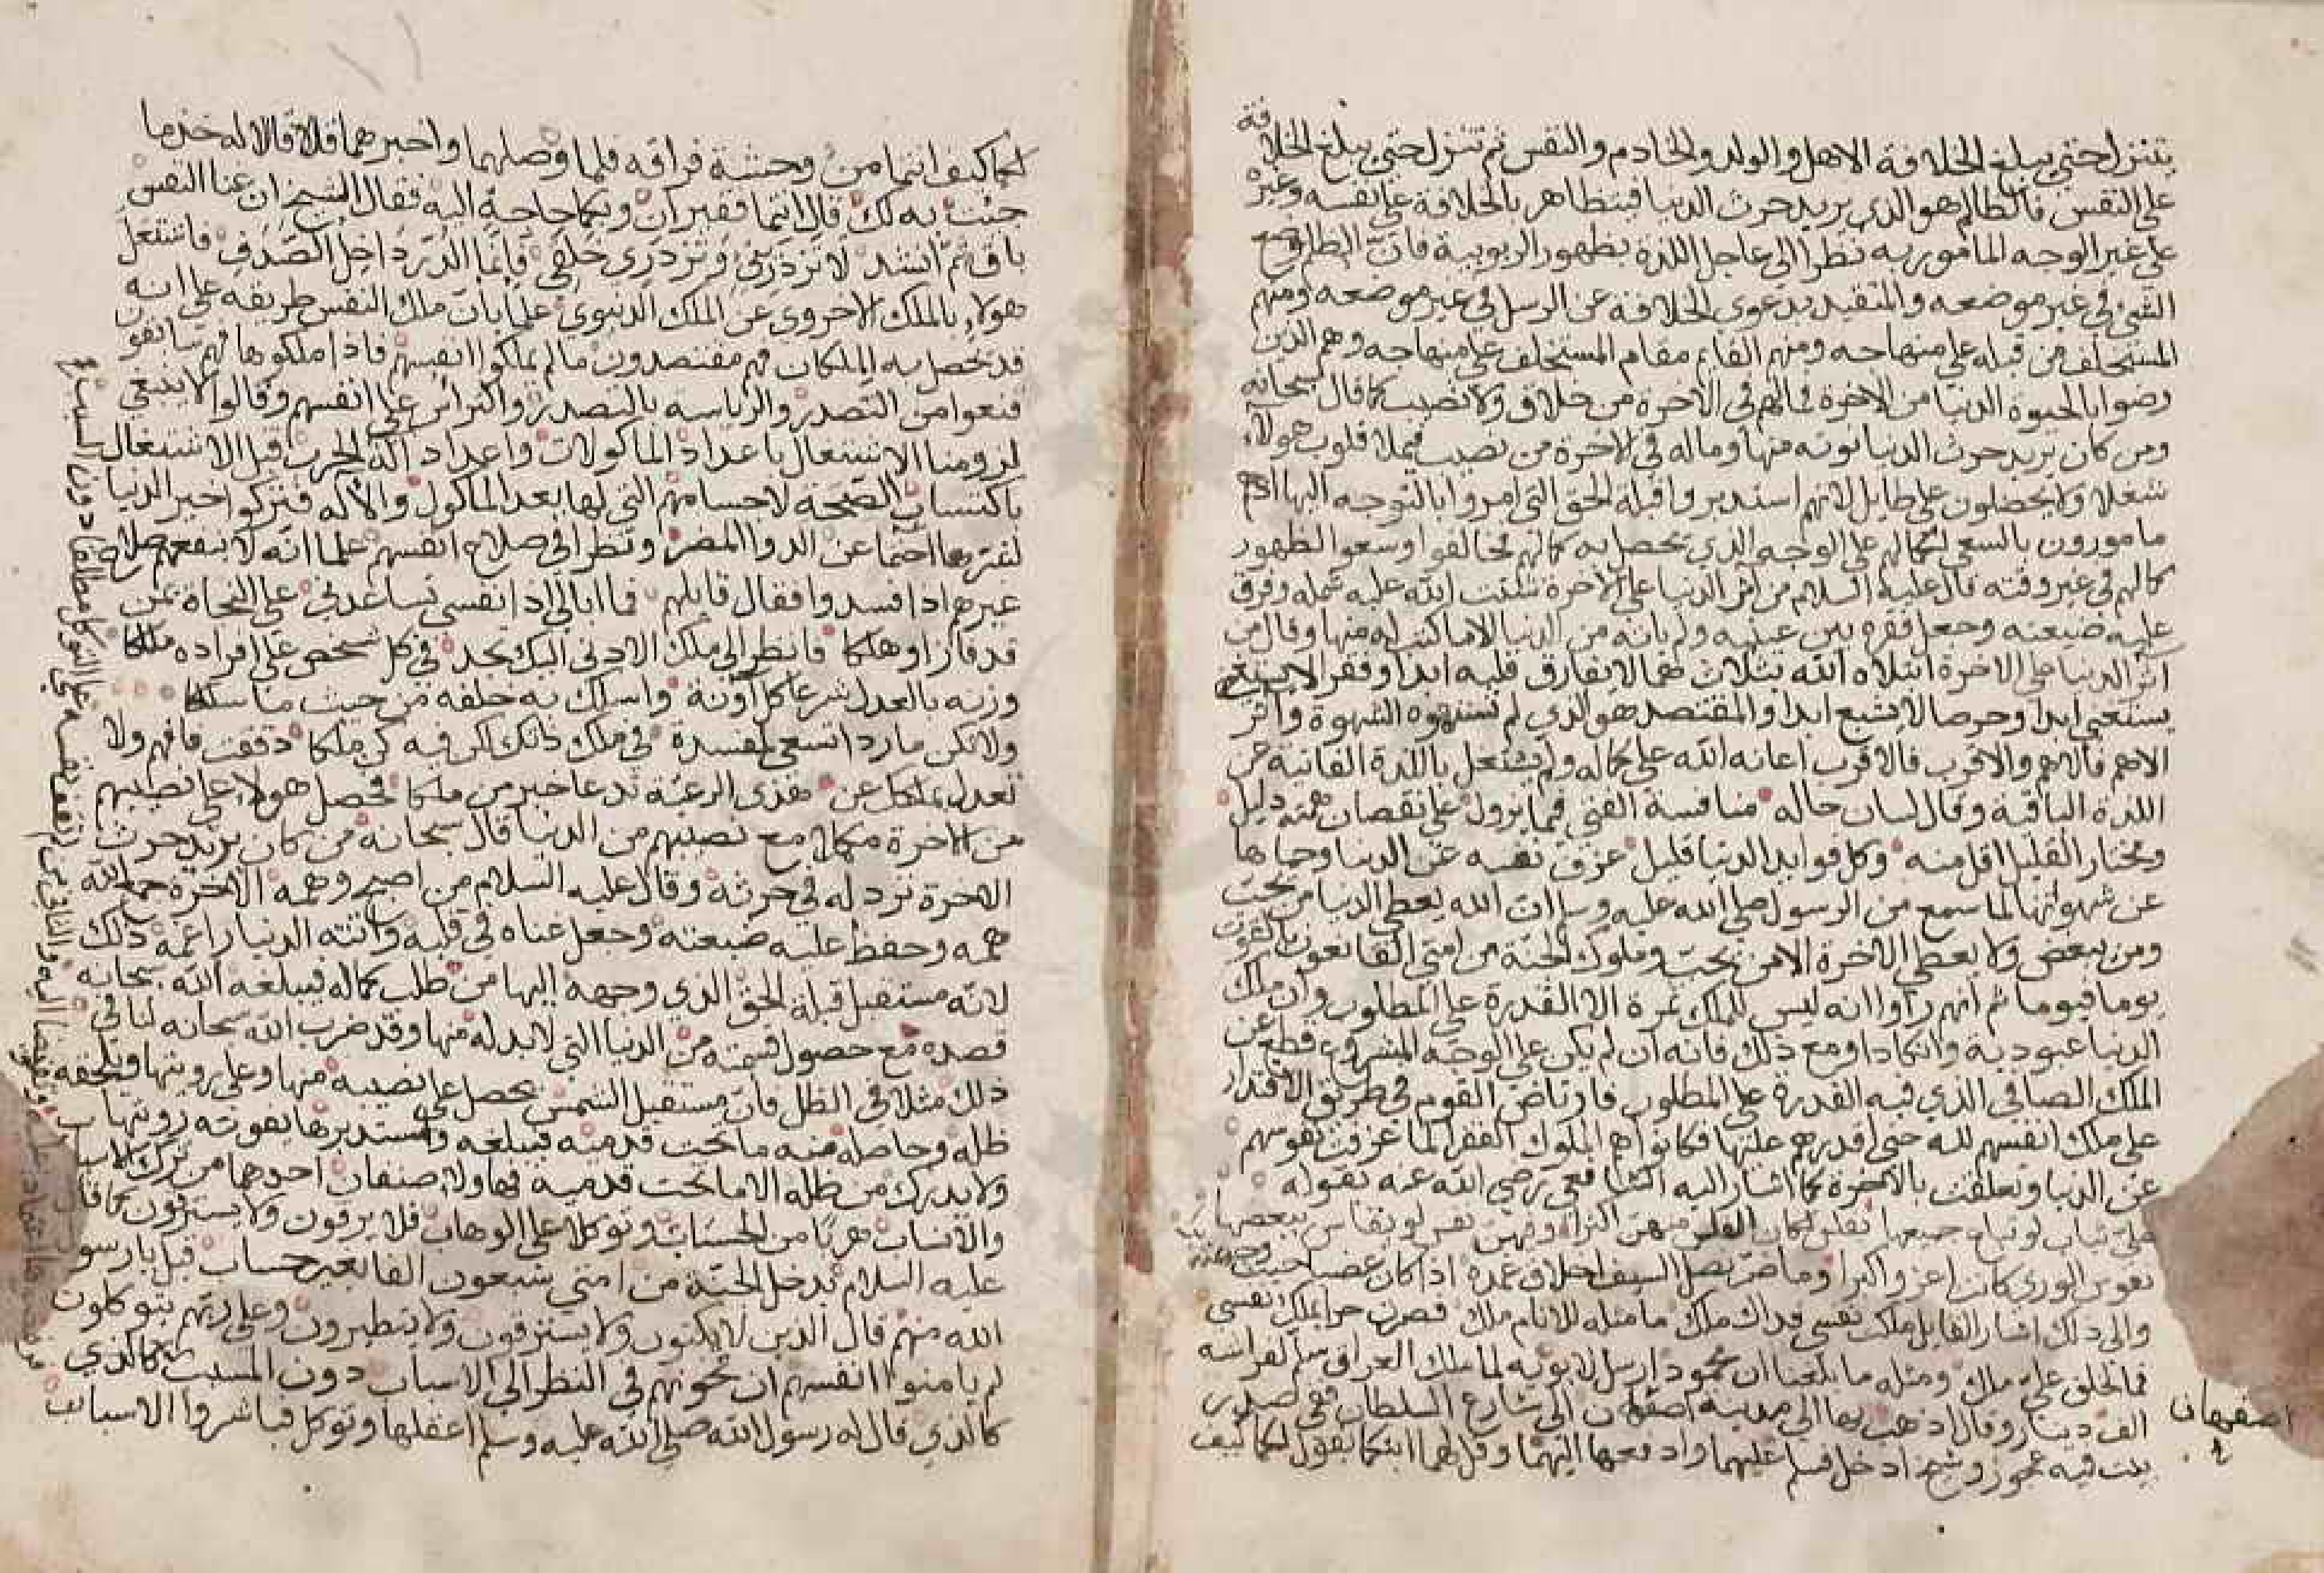 يتنزل حتى يبلغ الخلافة الاهل والولد والخادم والنفس ثم تتنزل حتى يبلغ الخلافة
على النفس فالظالم هو الذي يريد حرث الدنيا فيتظاهر بالخلافة على نفسه وغيره
على غير الوجه المأمور به نظرا الى عاجل اللذة بظهور الربوبية فان الظلم وضع
الشئ في غير موضعه والتقيد بدعوى الخلافة عن الرسل في غير موضعه ومنهم
المستخلف من قبله على منهاجه ومنهم القايم مقام المستخلف على منهاجه وهم الذين
رضوا بالحيوة الدنيا من الاخرة فمالهم في الاخرة من خلاق ولا نصيب كما قال سبحانه
ومن كان يريد حرث الدنيا نوته منها وماله في الاخرة من نصيب فيملا قلوب هولاء
شغلا ولا يحصلون على طايل لانهم استدبروا قبلة الحق التي امروا بالتوجه اليها اذ هم
مامورون بالسعي لكمالهم على الوجه الذي يحصل به كمالهم فخالفوا وسعوا لظهور
كمالهم في غير وقته قال عليه السلام من اثر الدنيا على الاخرة شتت الله عليه شمله وفرق
عليه ضيعته وجعل فقره بين عينيه ولم ياته من الدنيا الا ما كتب له منها وقال من
اثر الدنيا على الاخرة ابتلاه الله بثلاث هما لا يفارق قلبه ابدا وفقرا لا
يستغني ابدا وحرصا لا يشبع ابدا والمقتصد هو الذي لم تستهوه الشهوة واثر
الاهم فالاهم والاقرب فالاقرب اعانه الله على كماله ولم يشتغل باللذة الفانية عن
اللذة الباقية وقال لسان حاله منافسة الفتى فيما يزول على نقصان همته دليل
ومختار القليل اقل منه وكل فوايد الدنيا قليل عزف نفسه عن الدنيا وحماها
عن شهواتها لما سمع من الرسول صلى الله عليه وسلم ان الله يعطي الدنيا من يحب
ومن يبغض ولا يعطي الاخرة الا من يحب وملوك الجنة من امتي القانعون بالقوت
يوما فيوما ثم انهم راوا انه ليس للملك ثمرة الا القدرة على المطلوب وان ملك
الدنيا عبودية وانكادا ومع ذلك فانه ان لم يكن على الوجه المشروع قطع عن
الملك الصافي الذي فيه القدرة على المطلوب فارتاض القوم في طريق الاقتدار
على ملك انفسهم لله حتى اقدرهم عليها فكانوا هم الملوك الفقرا لما عزفت نفوسهم
عن الدنيا وتعلقت بالاخرة كما اشار اليه الشافعي رضي الله عنه بقوله
علي ثياب لو تباع جميعها بفلس لكان الفلس منهن اكثرا وفيهن نفس لو تقاس ببعضها
نفوس الورى كانت اعز واكبرا وما ضر نصل السيف اخلاق غمده اذا كان عضبا حيث وجه
والى ذلك اشار القايل ملكت نفسي فذاك ملك ما مثله للانام ملك فصرت حرا بملك نفسي
فما لخلق علي ملك ومثله ما بلغنا ان محمود ارسل لابويه لما ملك العراق
الف دينار وقال اذهب بها الى مدينة اصفهان الى شارع السلطان ففي صدره
اصفهان
بيت فيه عجوز وشيخ ادخل فسلم عليهما وادفعها اليهما وقل لهما ابنكما يقول لكما كيف
لكما كيف انتما من وحشة فراقه فلما وصلهما واخبرهما قالا له خذ ما
جئت به لك قال انتما فقيران وبكما حاجة اليه فقال الشيخ ان غنا النفس
باق ثم انشد لا تزدرني وتزدري خلقي فانما الدر داخل الصدف فاشتغل
هولاء بالملك الاخروي عن الملك الدنيوي علما بان ملك النفس طريقه على انه
قد يحصل به الملكان فهم مقتصدون ما لم يملكوا انفسهم فاذا ملكوها فهم سابقون
فنعوا من التصدر والرياسة بالتصدر واكثر اثر على انفسهم وقالوا لا ينبغي
لزومنا الاشتغال باعداد الماكولات واعداد الة الحرث قبل الاشتغال
باكتساب الصحة لاجسامهم التي لها يعد الماكول والالة فتركوا خير الدنيا
لشرها احتما عن الدوا المضر ونظرا في صلاح انفسهم علما انه لا ينفعهم صلاح
غيرهم اذا فسدوا فقال قايلهم فما ابالي اذا نفسي تساعدني على النجاة بمن
قد فاز او هلكا فانظر الى ملك الادنى اليك تجد في كل شخص على افراده ملكا
وزنه بالعدل شرعا كل آونة واسلك به خلفه من حيث ما سلكا
ولا تكن ماردا تسعى لمفسدة في ملك ذاتك لكن فيه كن ملكا دققت فافهم ولا
تعدل بملكك عن هذي الرعية تدعا خير من ملكا فحصل هولاء على نصيبهم
من الاخرة مكملا مع نصيبهم من الدنيا قال سبحانه من كان يريد حرث
الاخرة نزد له في حرثه وقال عليه السلام من اصبح وهمه الاخرة جمع الله
همه وحفظ عليه ضيعته وجعل غناه في قلبه واتته الدنيا راغمة ذلك
لانه مستقبل قبلة الحق الذي وجهه اليها من طلب كماله فيبلغه الله سبحانه
قصده مع حصول قسمته من الدنيا التي لا بد له منها وقد ضرب الله سبحانه لنا في
ذلك مثلا في الظل فان مستقبل الشمس يحصل على نصيبه منها وعلى رويتها ويلحقه
ظله وحاصله منه ما تحت قدميه فيبلغه ومستدبرها يفوته رويتها
ولا يدرك من ظله الا ما تحت قدميه فهاولاء صنفان احدهما من ترك الاسباب
والانساب هربا من الحساب وتوكلا على الوهاب فلا يرقون ولا يسترقون كما قال
عليه السلام تدخل الجنة من امتي سبعون الفا بغير حساب قيل يا رسول
الله منهم قال الذين لا يكتوون ولا يسترقون ولا يتطيرون وعلى ربهم يتوكلون
لم يامنوا انفسهم ان تخونهم في النظر الى الاسباب دون المسبب كالذي
كالذي قال له رسول الله صلى الله عليه وسلم اعقلها وتوكل فباشروا الاسباب